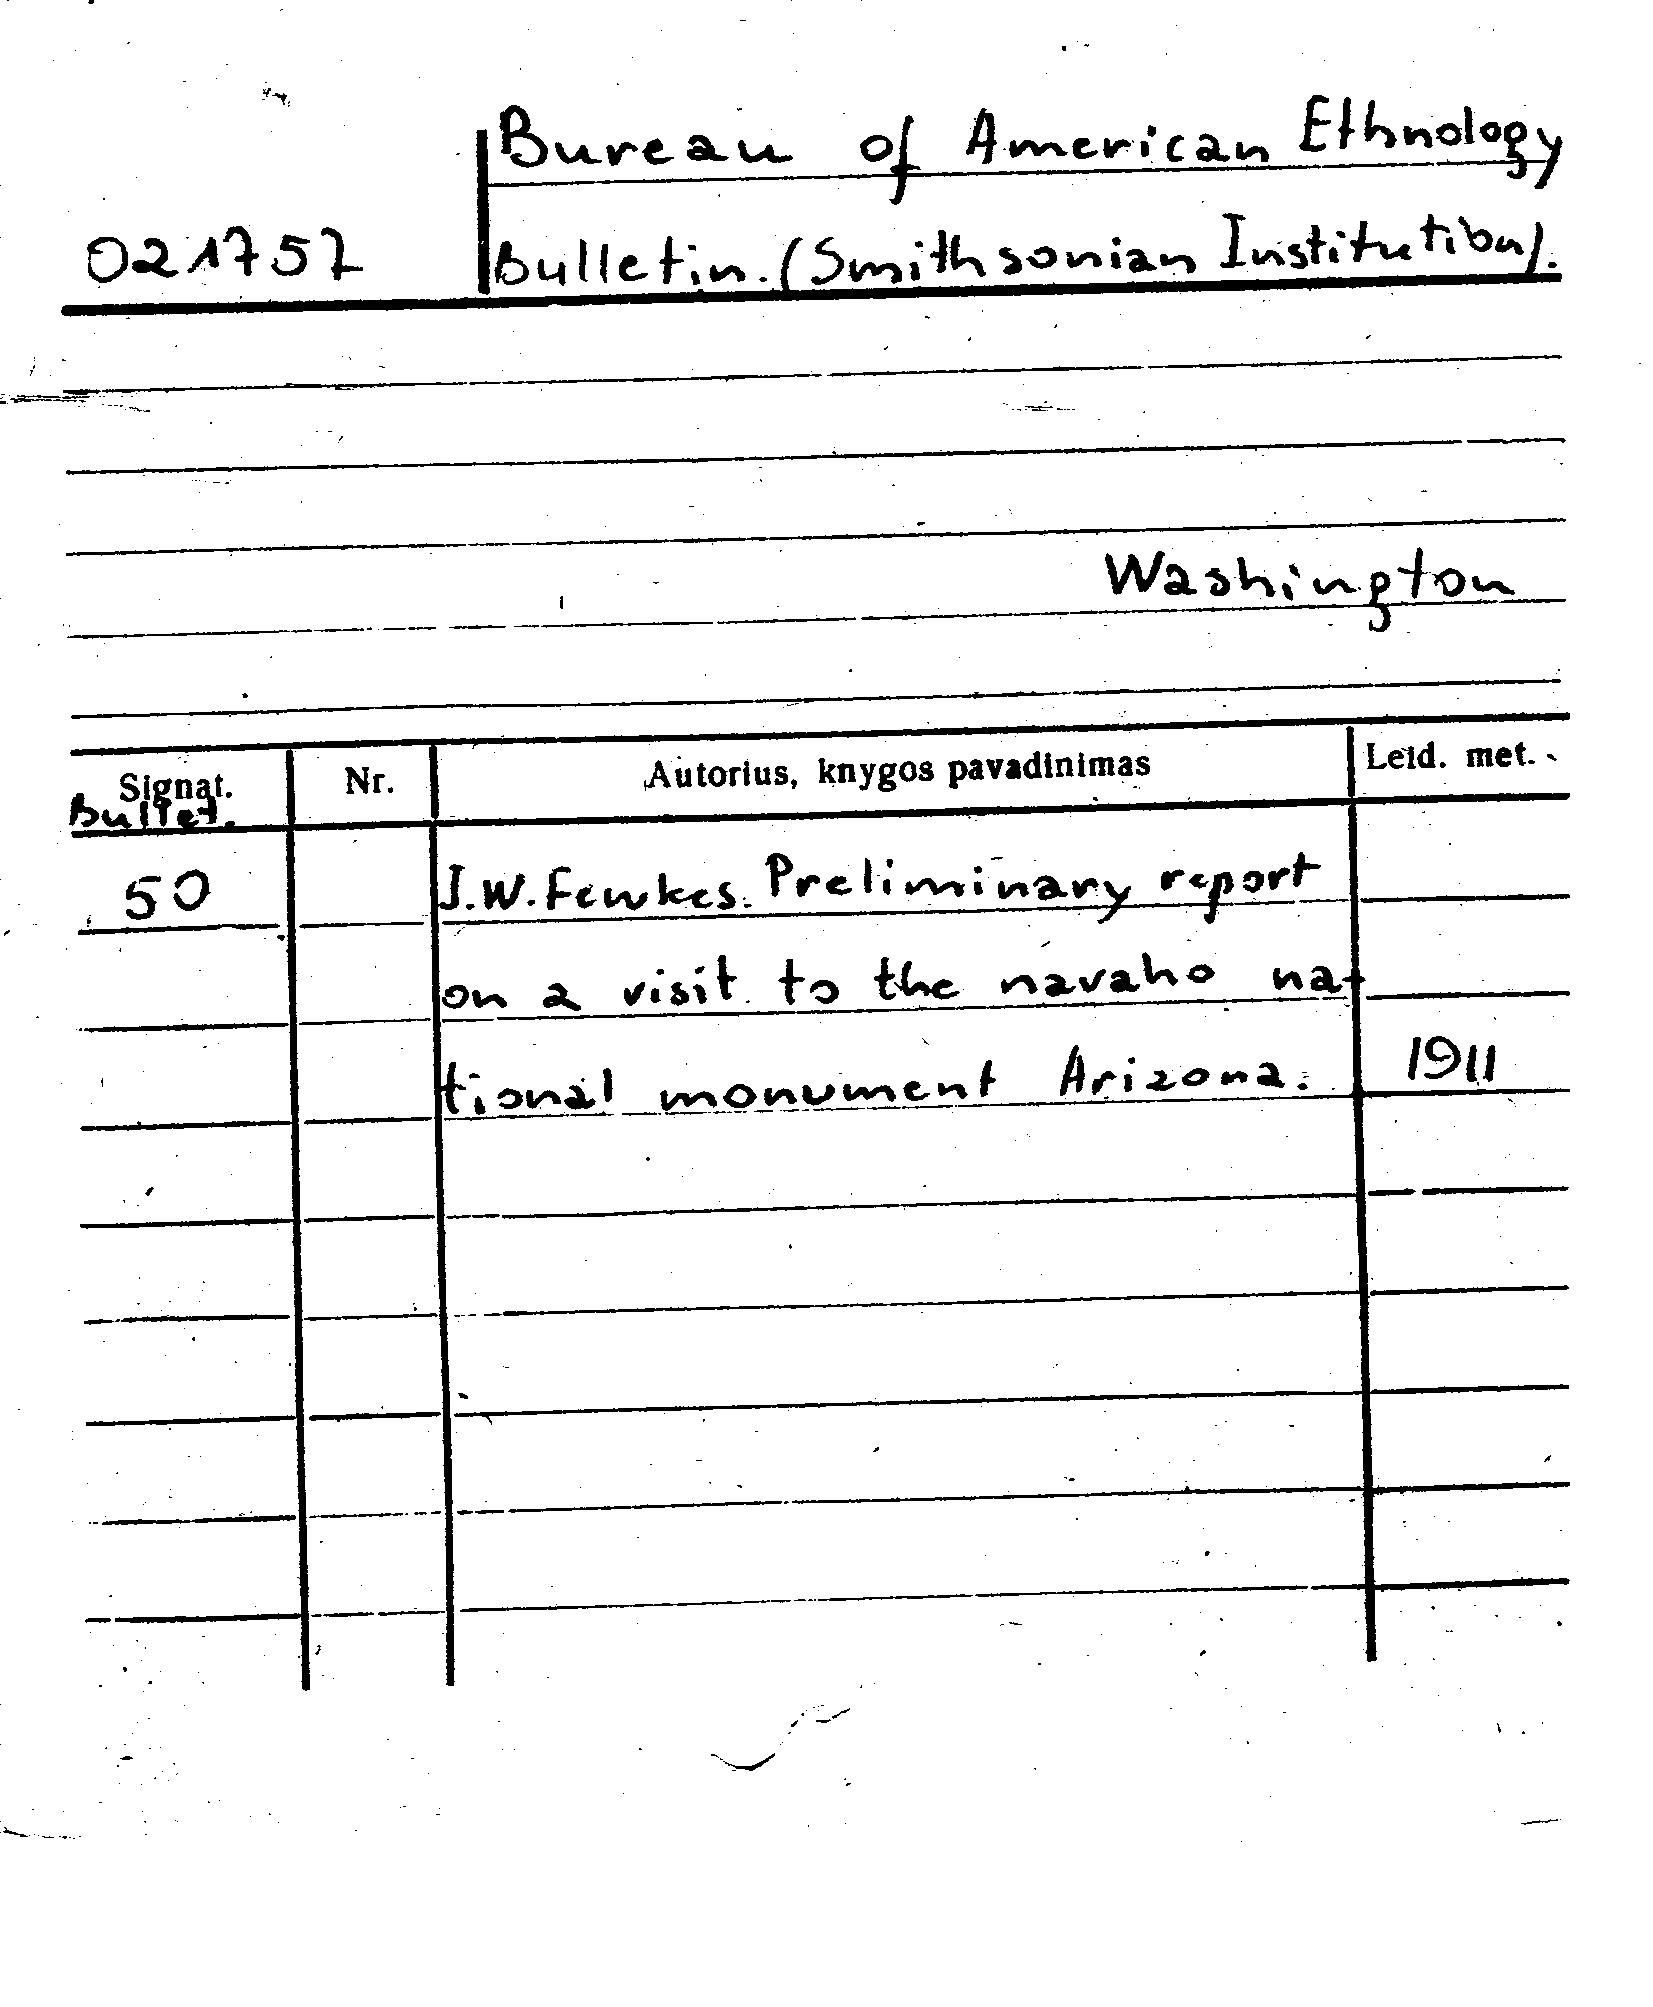 Bureau of American Ethnology
021757 Bulletin. (Smithsonian Institution).
Washington
Signat. Nr. Autorius, knygos pavadinimas Leid. met.
Bullet.
50 J.W. Fewkes. Preliminary report
on a visit to the navaho na-
tional monument Arizona. 1911